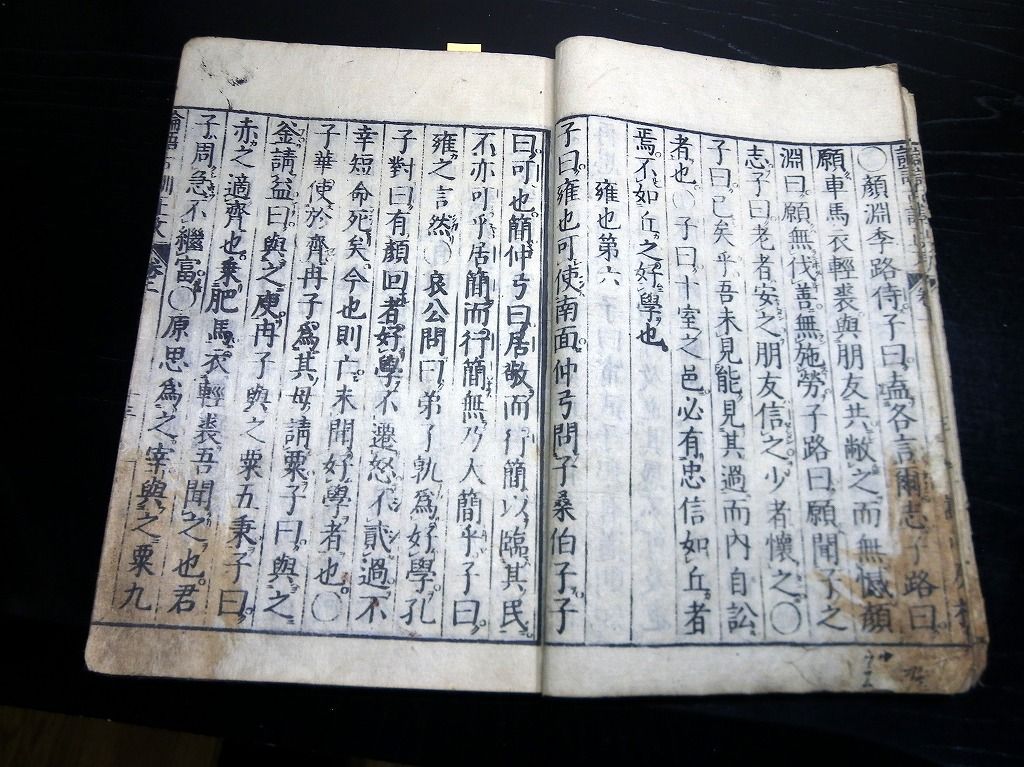 〇顔淵季路侍子曰盍各言爾志子路曰
願車馬衣輕裘與朋友共敝之而無憾顔
淵曰願無伐善無施勞子路曰願聞子之
志子曰老者安之朋友信之少者懷之〇
子曰已矣乎吾未見能見其過而內自訟
者也〇子曰十室之邑必有忠信如丘者
焉不如丘之好學也
雍也第六
子曰雍也可使南面仲弓問子桑伯子子
曰可也簡仲弓曰居敬而行簡以臨其民
不亦可乎居簡而行簡無乃大簡乎子曰
雍之言然〇哀公問曰弟子孰爲好學孔
子對曰有顔回者好學不遷怒不貳過不
幸短命死矣今也則亡未聞好學者也〇
子華使於齊冉子爲其母請粟子曰與之
釜請益曰與之庾冉子與之粟五秉子曰
赤之適齊也乘肥馬衣輕裘吾聞之也君
子周急不繼富〇原思爲之宰與之粟九